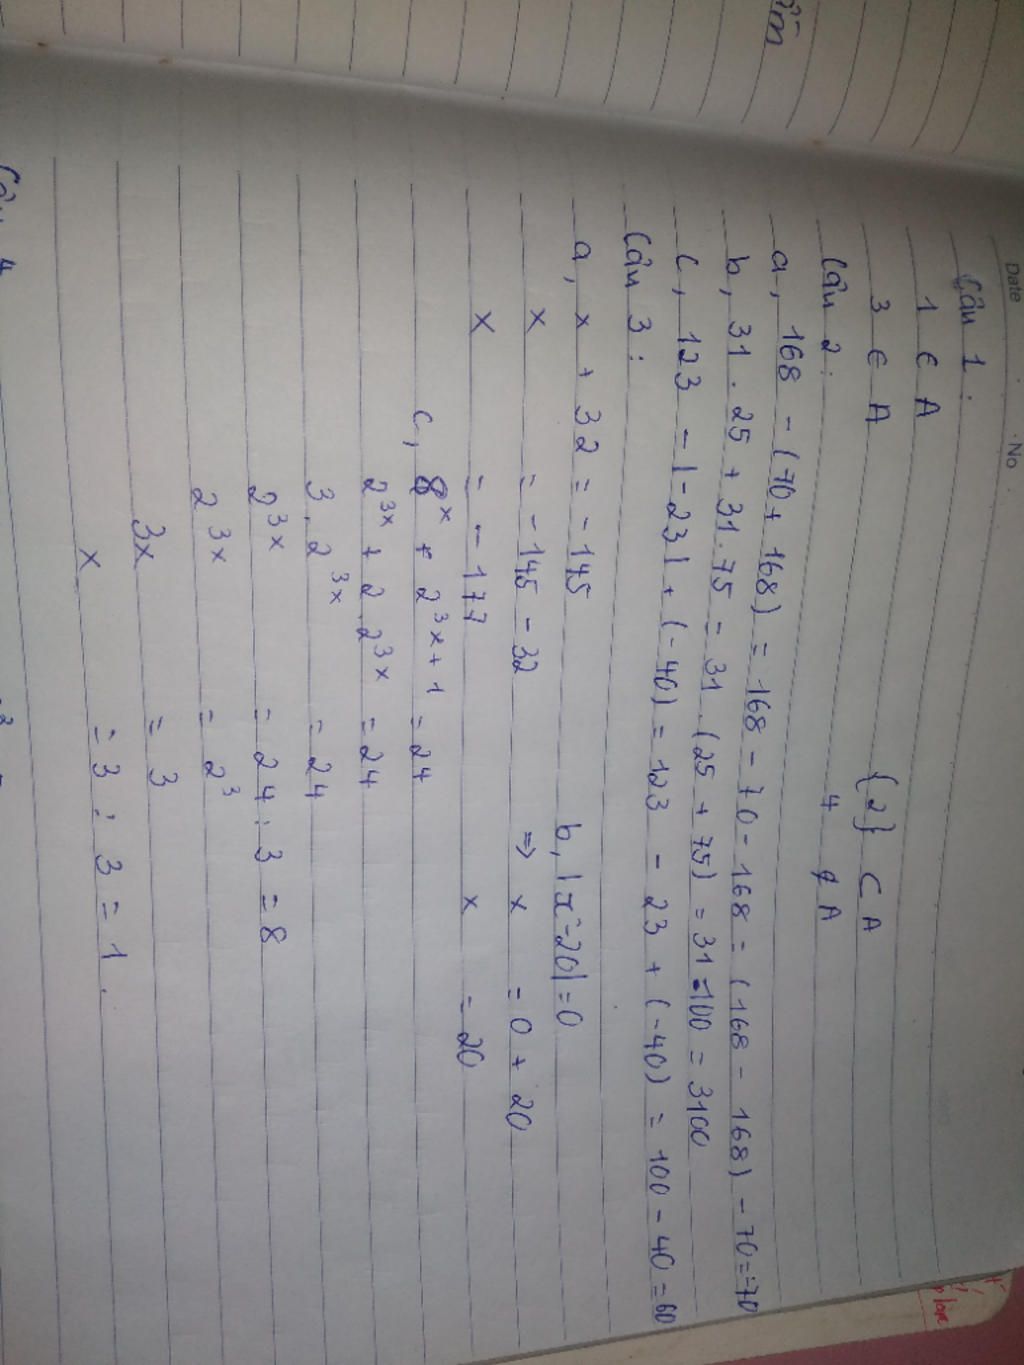 Date
No
Câu 1:
1 ∈ A
{2} ⊂ A
3 ∈ A
4 ∉ A
Câu 2:
a, 168 - (70 + 168) = 168 - 70 - 168 = (168 - 168) - 70 = -70
b, 31 . 25 + 31 . 75 = 31 . (25 + 75) = 31 . 100 = 3100
c, 123 - |-23| + (-40) = 123 - 23 + (-40) = 100 - 40 = 60
Câu 3:
a, x + 32 = -145
x = -145 - 32
x = -177
b, |x - 20| = 0
=> x = 0 + 20
x = 20
c, 8^x + 2^3x+1 = 24
2^3x + 2.2^3x = 24
3.2^3x = 24
2^3x = 24 : 3 = 8
2^3x = 2^3
3x = 3
x = 3 : 3 = 1.
Câu 4